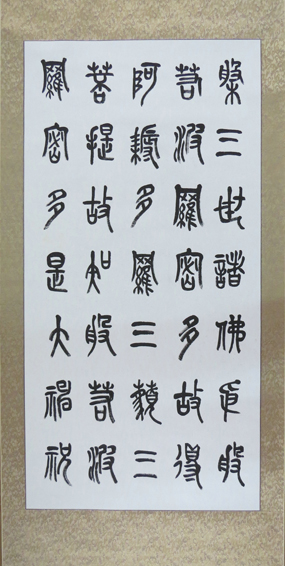 槃三世諸佛依般
若波羅密多故得
阿耨多羅三藐三
菩提故知般若波
羅密多是大神祝